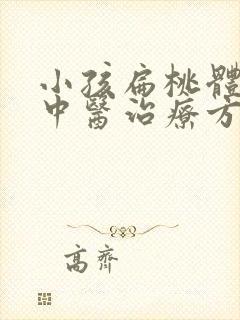 小孩扁桃體
中醫治療方
高齊